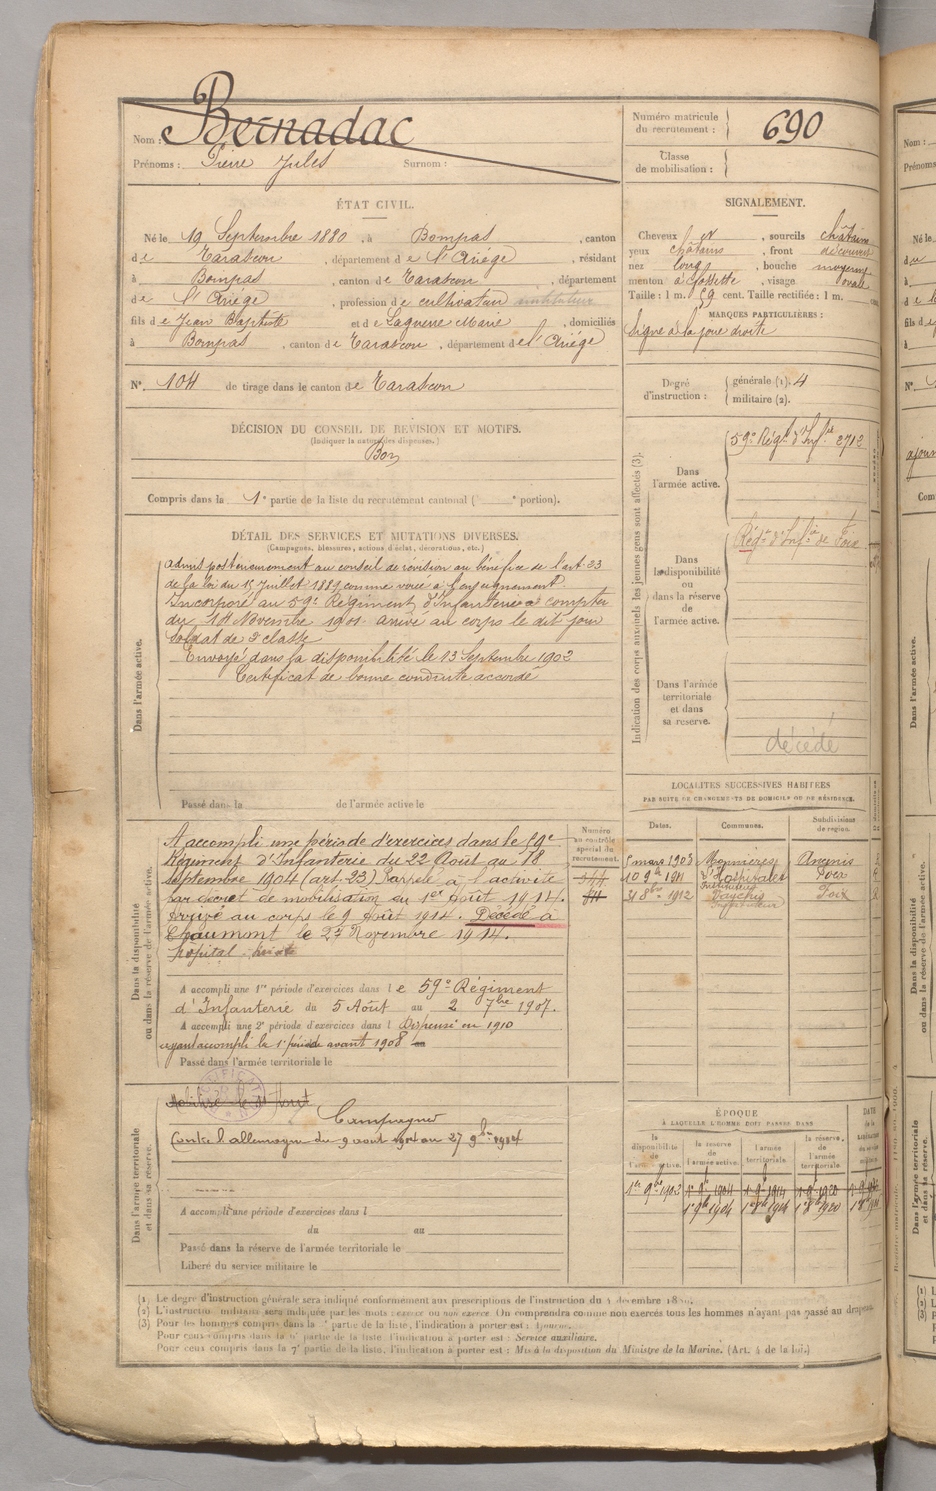 Nom : Bernadac
Prénoms : Pierre Jules Surnom :
Numéro matricule du recrutement : 690
Classe de mobilisation :
ÉTAT CIVIL.
Né le 19 Septembre 1880, à Bompas, canton
de Tarascon, département de l'Ariège, résidant
à Bompas, canton de Tarascon, département
de l'Ariège, profession de cultivateur instituteur
fils de Jean Baptiste et de Laguerre Marie, domiciliés
à Bompas, canton de Tarascon, département de l'Ariège
N° 104 de tirage dans le canton de Tarascon
SIGNALEMENT.
Cheveux et, sourcils châtains
yeux châtains, front découvert
nez long, bouche moyenne
menton à fossette, visage ovale
Taille : 1 m. 59 cent. Taille rectifiée : 1 m. cent.
MARQUES PARTICULIÈRES :
Signe à la joue droite
Degré d'instruction : générale (1). 4
militaire (2).
DÉCISION DU CONSEIL DE REVISION ET MOTIFS.
(Indiquer la nature des dispenses.)
Bon
Compris dans la 1e partie de la liste du recrutement cantonal ( e portion).
DÉTAIL DES SERVICES ET MUTATIONS DIVERSES.
(Campagnes, blessures, actions d'éclat, décorations, etc.)
Dans l'armée active.
admis postérieurement au conseil de révision au bénéfice de l'art. 23
de la loi du 15 Juillet 1889 comme voué à l'enseignement
Incorporé au 59e Régiment d'Infanterie à compter
du 14 Novembre 1901 arrivé au corps le dit jour
soldat de 2e classe
Envoyé dans la disponibilité le 13 Septembre 1902
Certificat de bonne conduite accordé
Passé dans la de l'armée active le
Indication des corps auxquels les jeunes gens sont affectés (3).
Dans l'armée active.
59e Régt d'Infrie 2712
Dans la disponibilité ou dans la réserve de l'armée active.
Régt d'Infie de Foix
Dans l'armée territoriale et dans sa réserve.
décédé
Dans la disponibilité ou dans la réserve de l'armée active.
A accompli une période d'exercices dans le 59e
Régiment d'Infanterie du 22 Août au 18
septembre 1904 (art. 23) Rappelé à l'activité
par décret de mobilisation du 1er Août 1914.
Arrivé au corps le 9 Août 1914. Décédé à
Chaumont le 27 Novembre 1914.
hôpital
Numéro au contrôle spécial du recrutement.
A accompli une 1re période d'exercices dans le 59e Régiment
d'Infanterie du 5 Août au 2 7bre 1907.
A accompli une 2e période d'exercices dans l Dispensé en 1910
ayant accompli la 1e période avant 1908
Passé dans l'armée territoriale le
LOCALITÉS SUCCESSIVES HABITÉES
PAR SUITE DE CHANGEMENTS DE DOMICILE OU DE RÉSIDENCE.
Dates. Communes. Subdivisions de région.
5 mars 1903 Monnières Ancenis
10 9bre 1911 l'Hospitalet Foix
Instituteur
31 8bre 1912 Vaychis Foix
Instituteur
Dans l'armée territoriale et dans sa réserve.
Campagnes
Contre l'allemagne du 9 août 1914 au 27 9bre 1914
A accompli une période d'exercices dans l
du au
Passé dans la réserve de l'armée territoriale le
Libéré du service militaire le
ÉPOQUE
À LAQUELLE L'HOMME DOIT PASSER DANS
la disponibilité de l'armée active. la réserve de l'armée active. l'armée territoriale. la réserve de l'armée territoriale.
DATE de la LIBÉRATION du service militaire
1er 9bre 1902 1er 9bre 1904 1er 9bre 1914 1er 9bre 1920
1er 9bre 1904 1er 8bre 1914 1er 8bre 1920
(1) Le degré d'instruction générale sera indiqué conformément aux prescriptions de l'instruction du 4 décembre 1889.
(2) L'instruction militaire sera indiquée par les mots exercé ou non exercé. On comprendra comme non exercés tous les hommes n'ayant pas passé au drapeau.
(3) Pour les hommes compris dans la partie de la liste, l'indication à porter est : Ajourné.
Pour ceux compris dans la partie de la liste, l'indication à porter est : Service auxiliaire.
Pour ceux compris dans la 7e partie de la liste, l'indication à porter est : Mis à la disposition du Ministre de la Marine. (Art. 4 de la loi.)